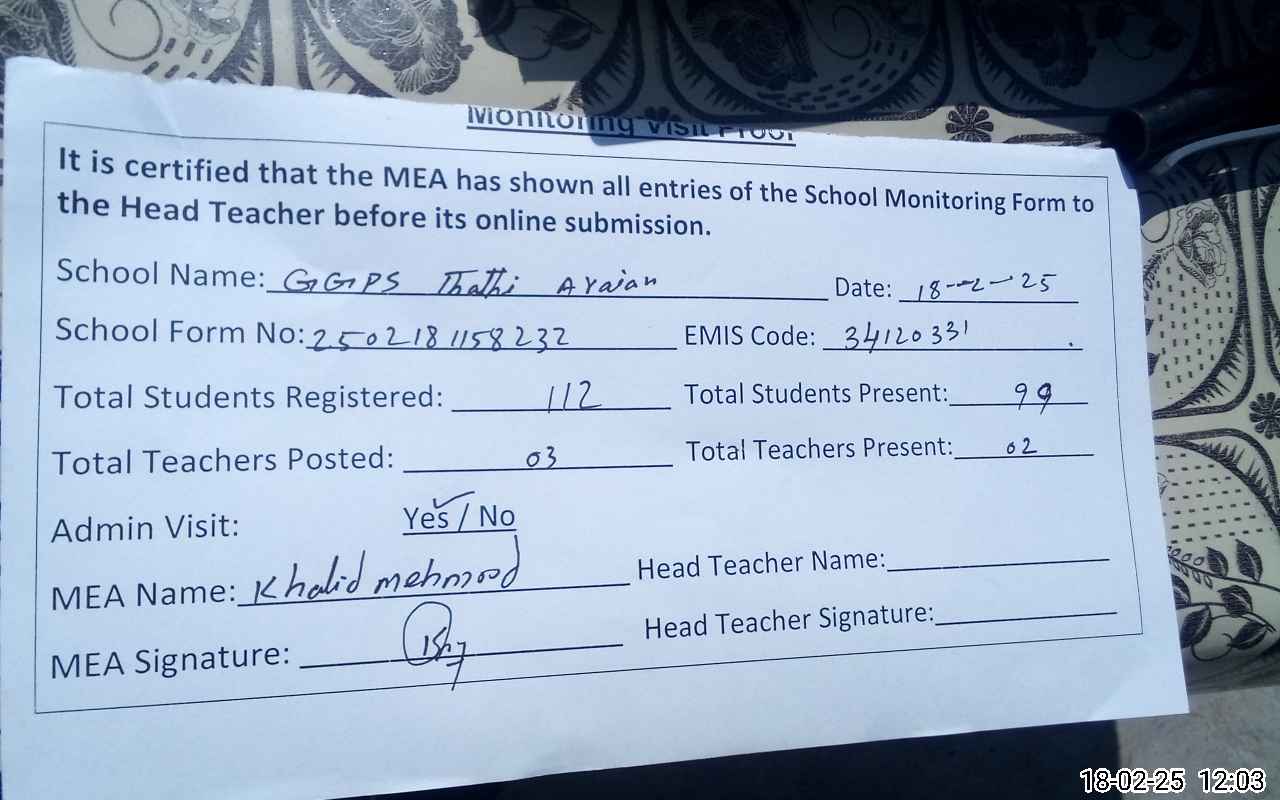 Monitoring Visit Proof
It is certified that the MEA has shown all entries of the School Monitoring Form to
the Head Teacher before its online submission.
School Name: GGPS Thathi Araian Date: 18-2-25
School Form No: 2502181158232 EMIS Code: 34120331
Total Students Registered: 112 Total Students Present: 99
Total Teachers Posted: 03 Total Teachers Present: 02
Admin Visit: Yes / No
MEA Name: Khalid mehmood Head Teacher Name:
MEA Signature: Head Teacher Signature:
18-02-25 12:03